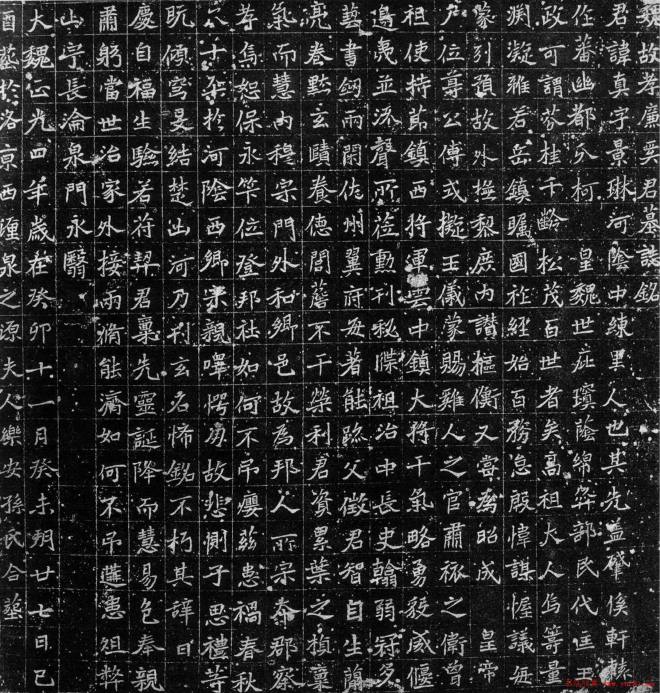 魏故孝廉奚君墓誌銘
君諱真字景琳河陰中練里人也其先蓋肇俟軒轅
作蕃幽都分柯 皇魏世庇瓊蔭綿弈部民代匡王
政可謂芬桂千齡松茂百世者矣高祖大人烏籌量
淵凝雅若岳鎮矚國祚經始百務怠殷帷謀幄議每
蒙列預故外撫黎庶內讚樞衡又嘗為昭成 皇帝
尸位尊公傅式擬王儀蒙賜雞人之官肅旅之衛曾
祖使持節鎮西將軍雲中鎮大將干氣略勇毅威偃
邊夷並流聲所莅勳刊秘牒祖治中長史翰弱冠多
藝書劒兩閑佐州翼府每著能跡父徵君智自生簡
亮卷默玄賾養德閭薝不干榮利君資累葉之楨稟
氣而慧內穆宗門外和鄉邑故為邦人所宗本郡察
孝焉恕保永筭位登邦社如何不弔癭茲患禍春秋
六十卒於河陰西鄉宗親嗶愕朋故悲惻子思禮等
既傾穹旻結楚山河乃刊玄石怖銘不朽其辭曰
慶自福生驗若符契君稟先靈誕降而慧易色奉親
肅躬當世治家外接兩脩能濟如何不弔遘患徂弊
山亭長淪泉門永翳
大魏正光四年歲在癸卯十一月癸未朔廿七日己
酉葬於洛京西瀍泉之源夫人樂安孫氏合墓